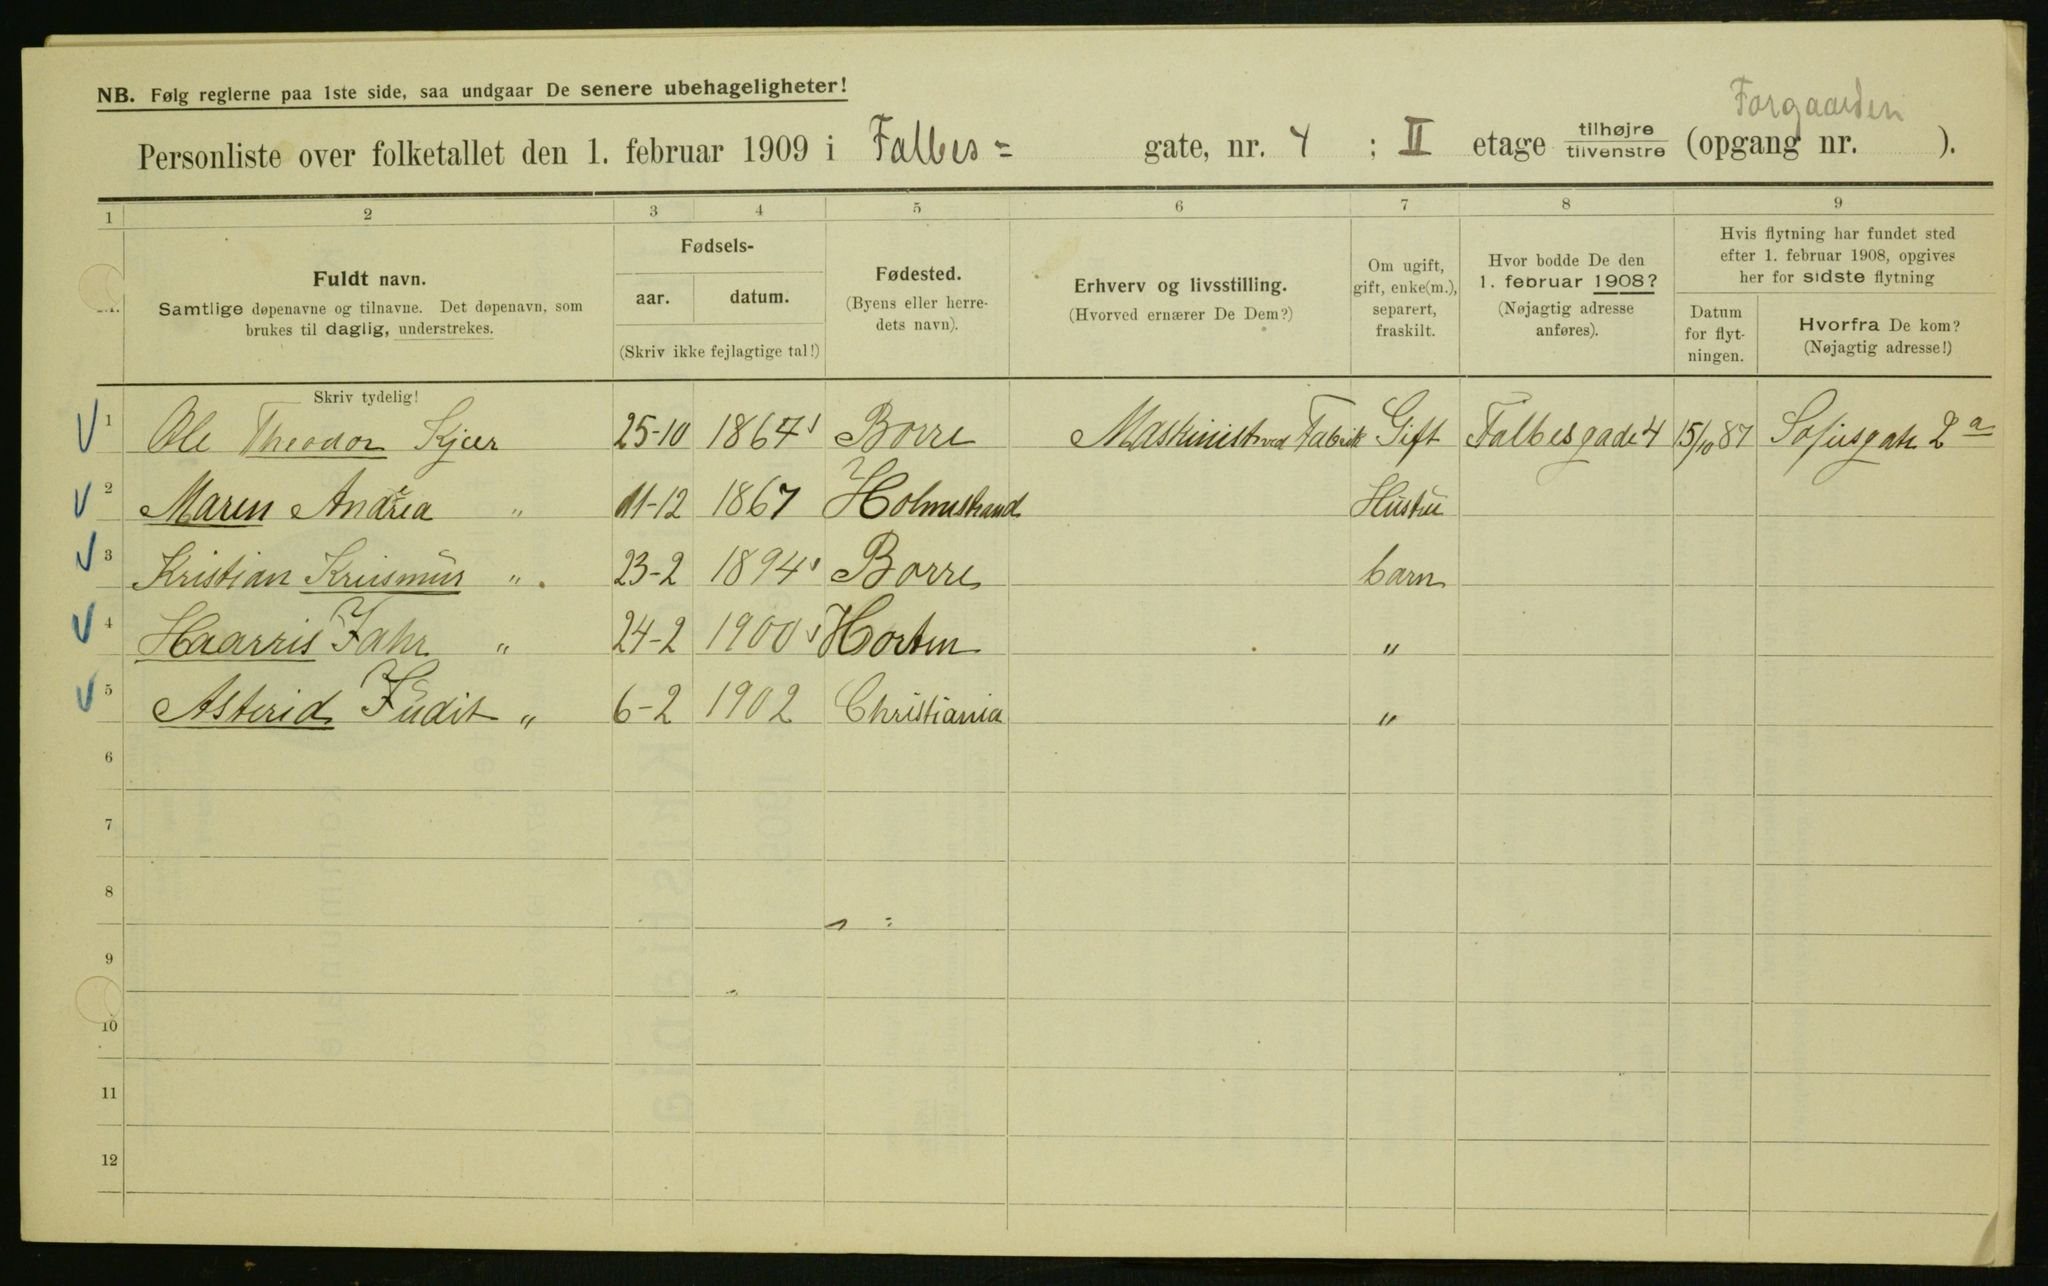 NB. Følg reglerne paa 1ste side, saa undgaar De senere ubehageligheter!
Forgaarden
Personliste over folketallet den 1. februar 1909 i Falbes= gate, nr. 4 ; II etage tilhøjre / tilvenstre (opgang nr. ).
1 2 3 4 5 6 7 8 9
Fuldt navn.
Samtlige døpenavne og tilnavne. Det døpenavn, som
brukes til daglig, understrekes.
Fødsels-
aar. datum.
(Skriv ikke fejlagtige tal!)
Fødested.
(Byens eller herre-
dets navn).
Erhverv og livsstilling.
(Hvorved ernærer De Dem?)
Om ugift,
gift, enke(m.),
separert,
fraskilt.
Hvor bodde De den
1. februar 1908?
(Nøjagtig adresse
anføres).
Hvis flytning har fundet sted
efter 1. februar 1908, opgives
her for sidste flytning
Datum
for flyt-
ningen.
Hvorfra De kom?
(Nøjagtig adresse!)
Skriv tydelig!
1 Ole Theodor Kjær 25-10 1867 Borre Maskinist ved Fabrik Gift Falbesgade 4 15/10 87 Sofiesgate 2 a
2 Maren Andrea " 11-12 1867 Holmestrand Hustru
3 Kristian " 23-2 1894 Borre barn
4 Haarris " 24-2 1900 Horten "
5 Astrid Judit " 6-2 1902 Christiania "
6
7
8
9
10
11
12